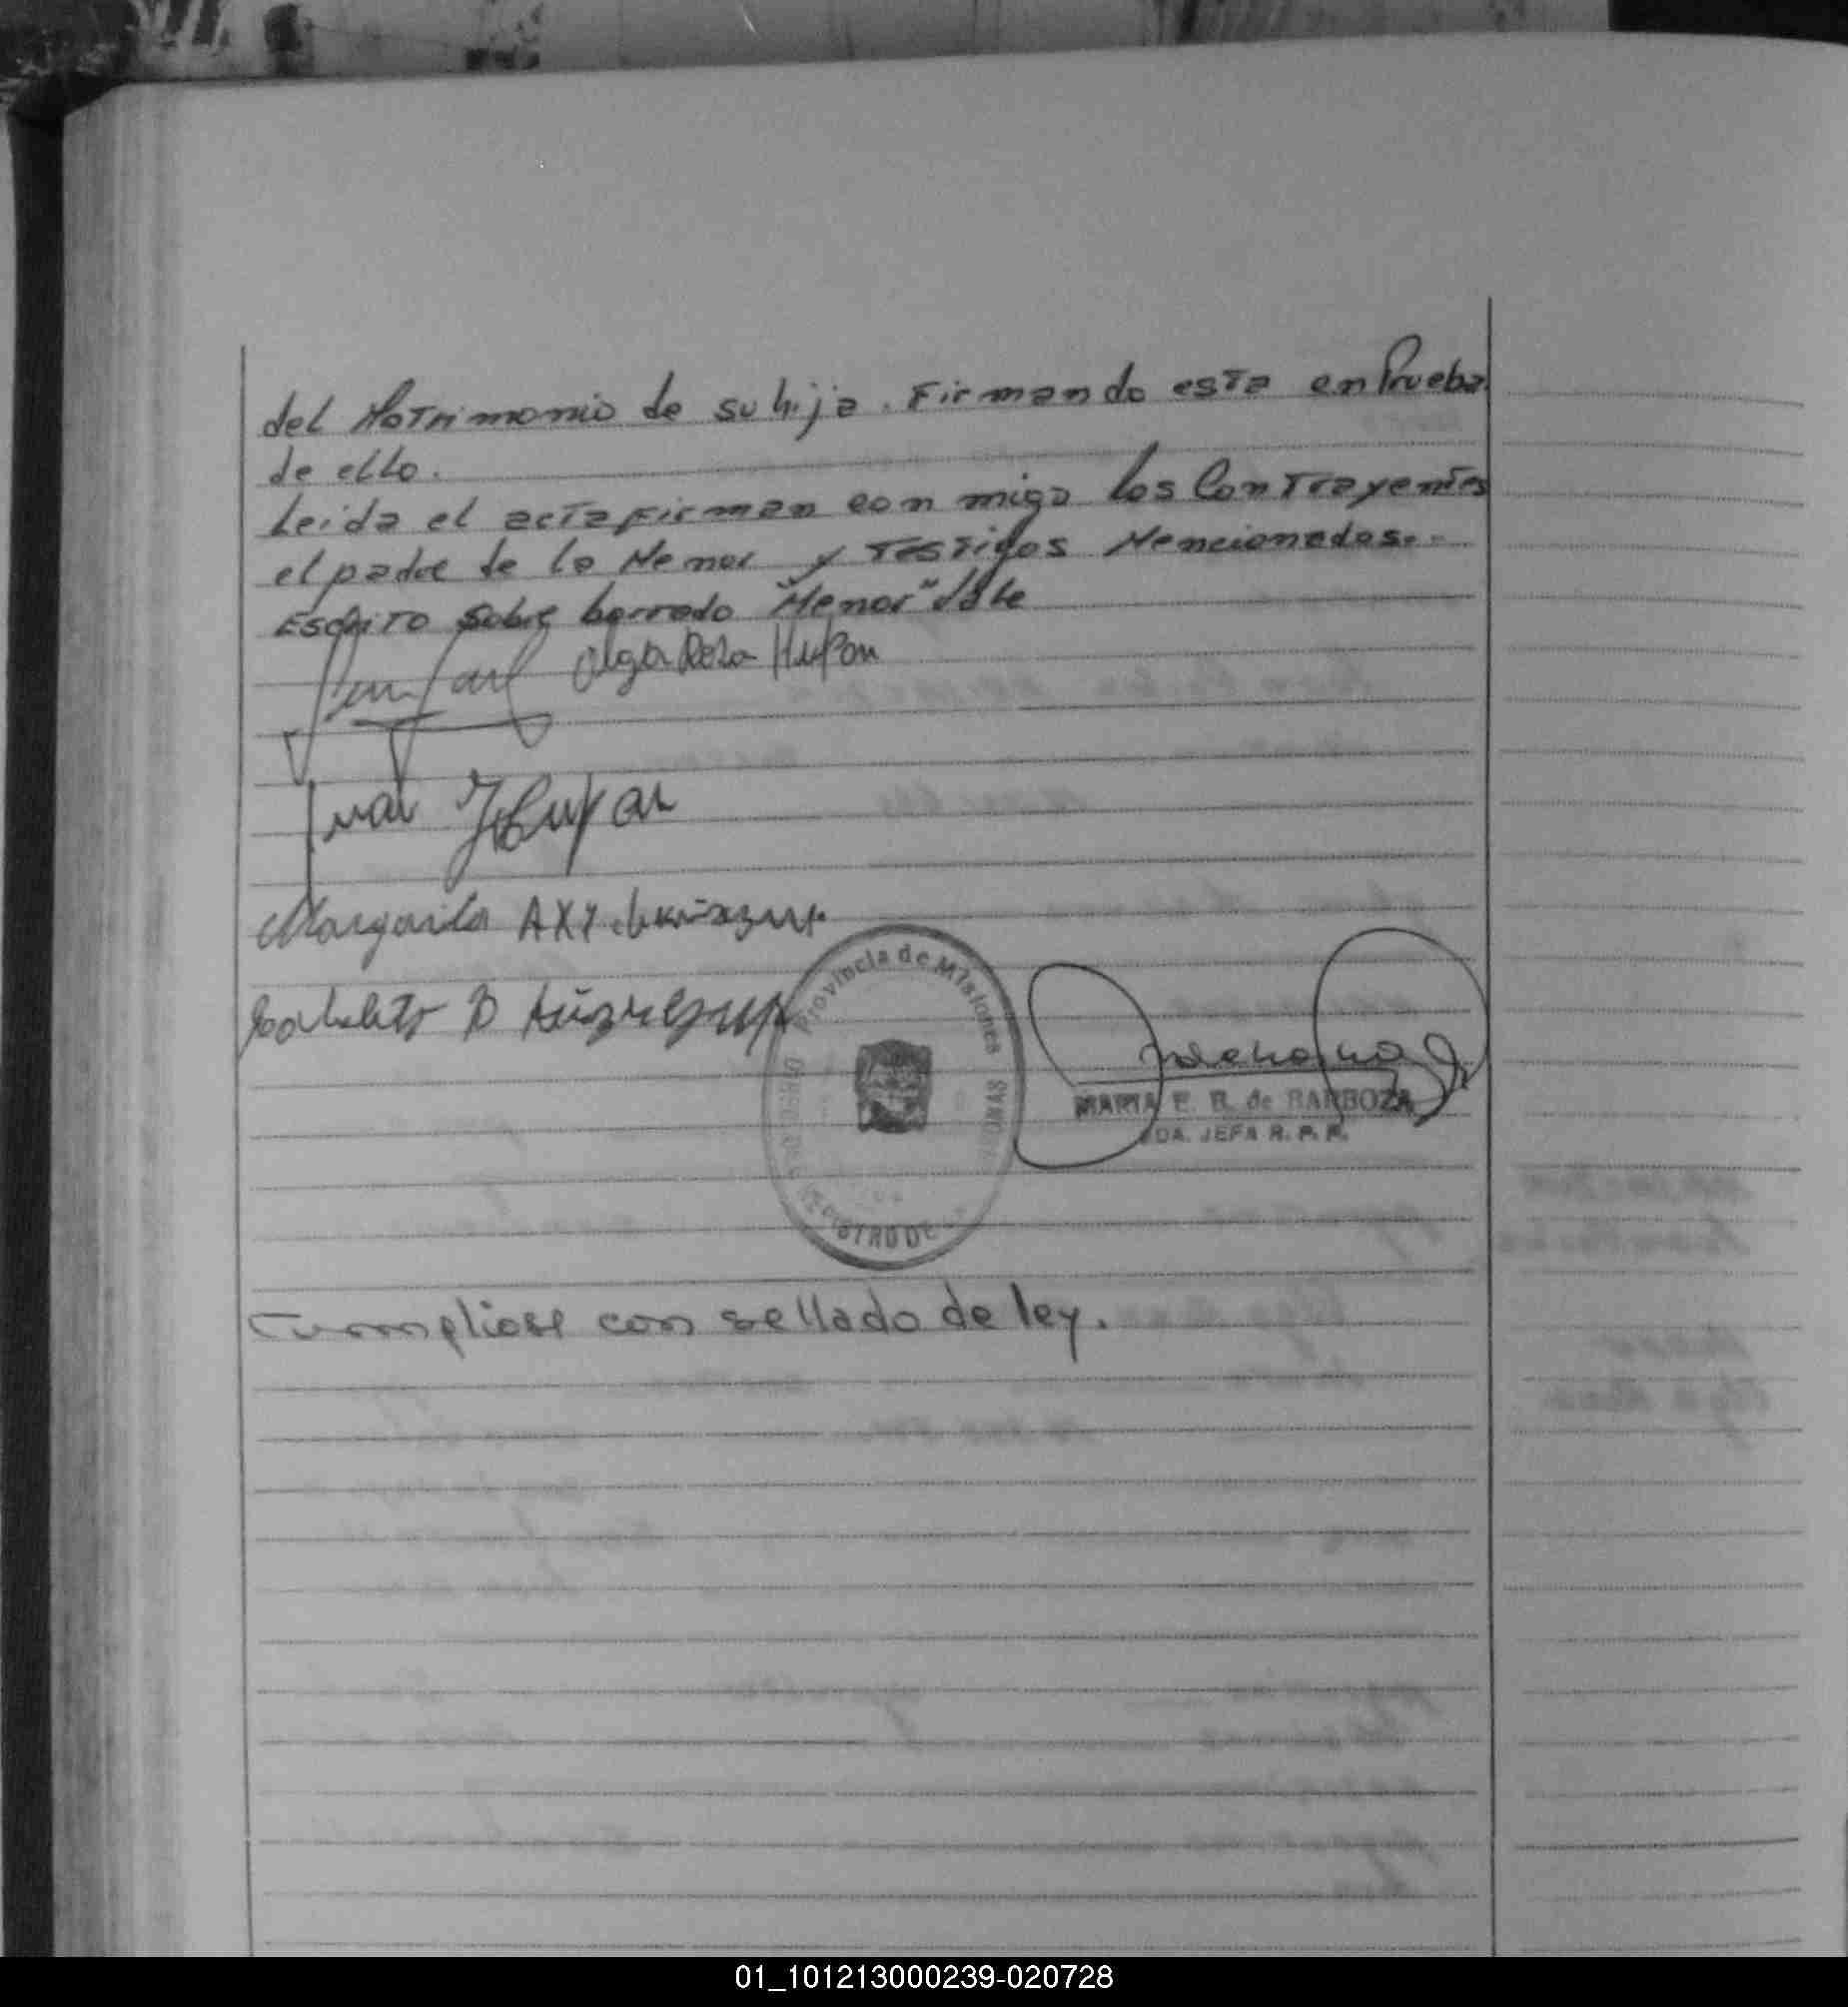 del Matrimonio de su hija. Firmando esta en Prueba
de ello.
Leida el acta firman con migo los Contrayentes
el padre de la Menor y Testigos Mencionados.-
Escrito sobre borrado "Menor" Vale
Olga Rosa Hupan
Juan Hupan
Margarita
Provincia de Misiones
REGISTRO DE
MARIA E. B. de BARBOZA
JEFA R. P. P.
Cumpliose con sellado de ley.
01_101213000239-020728